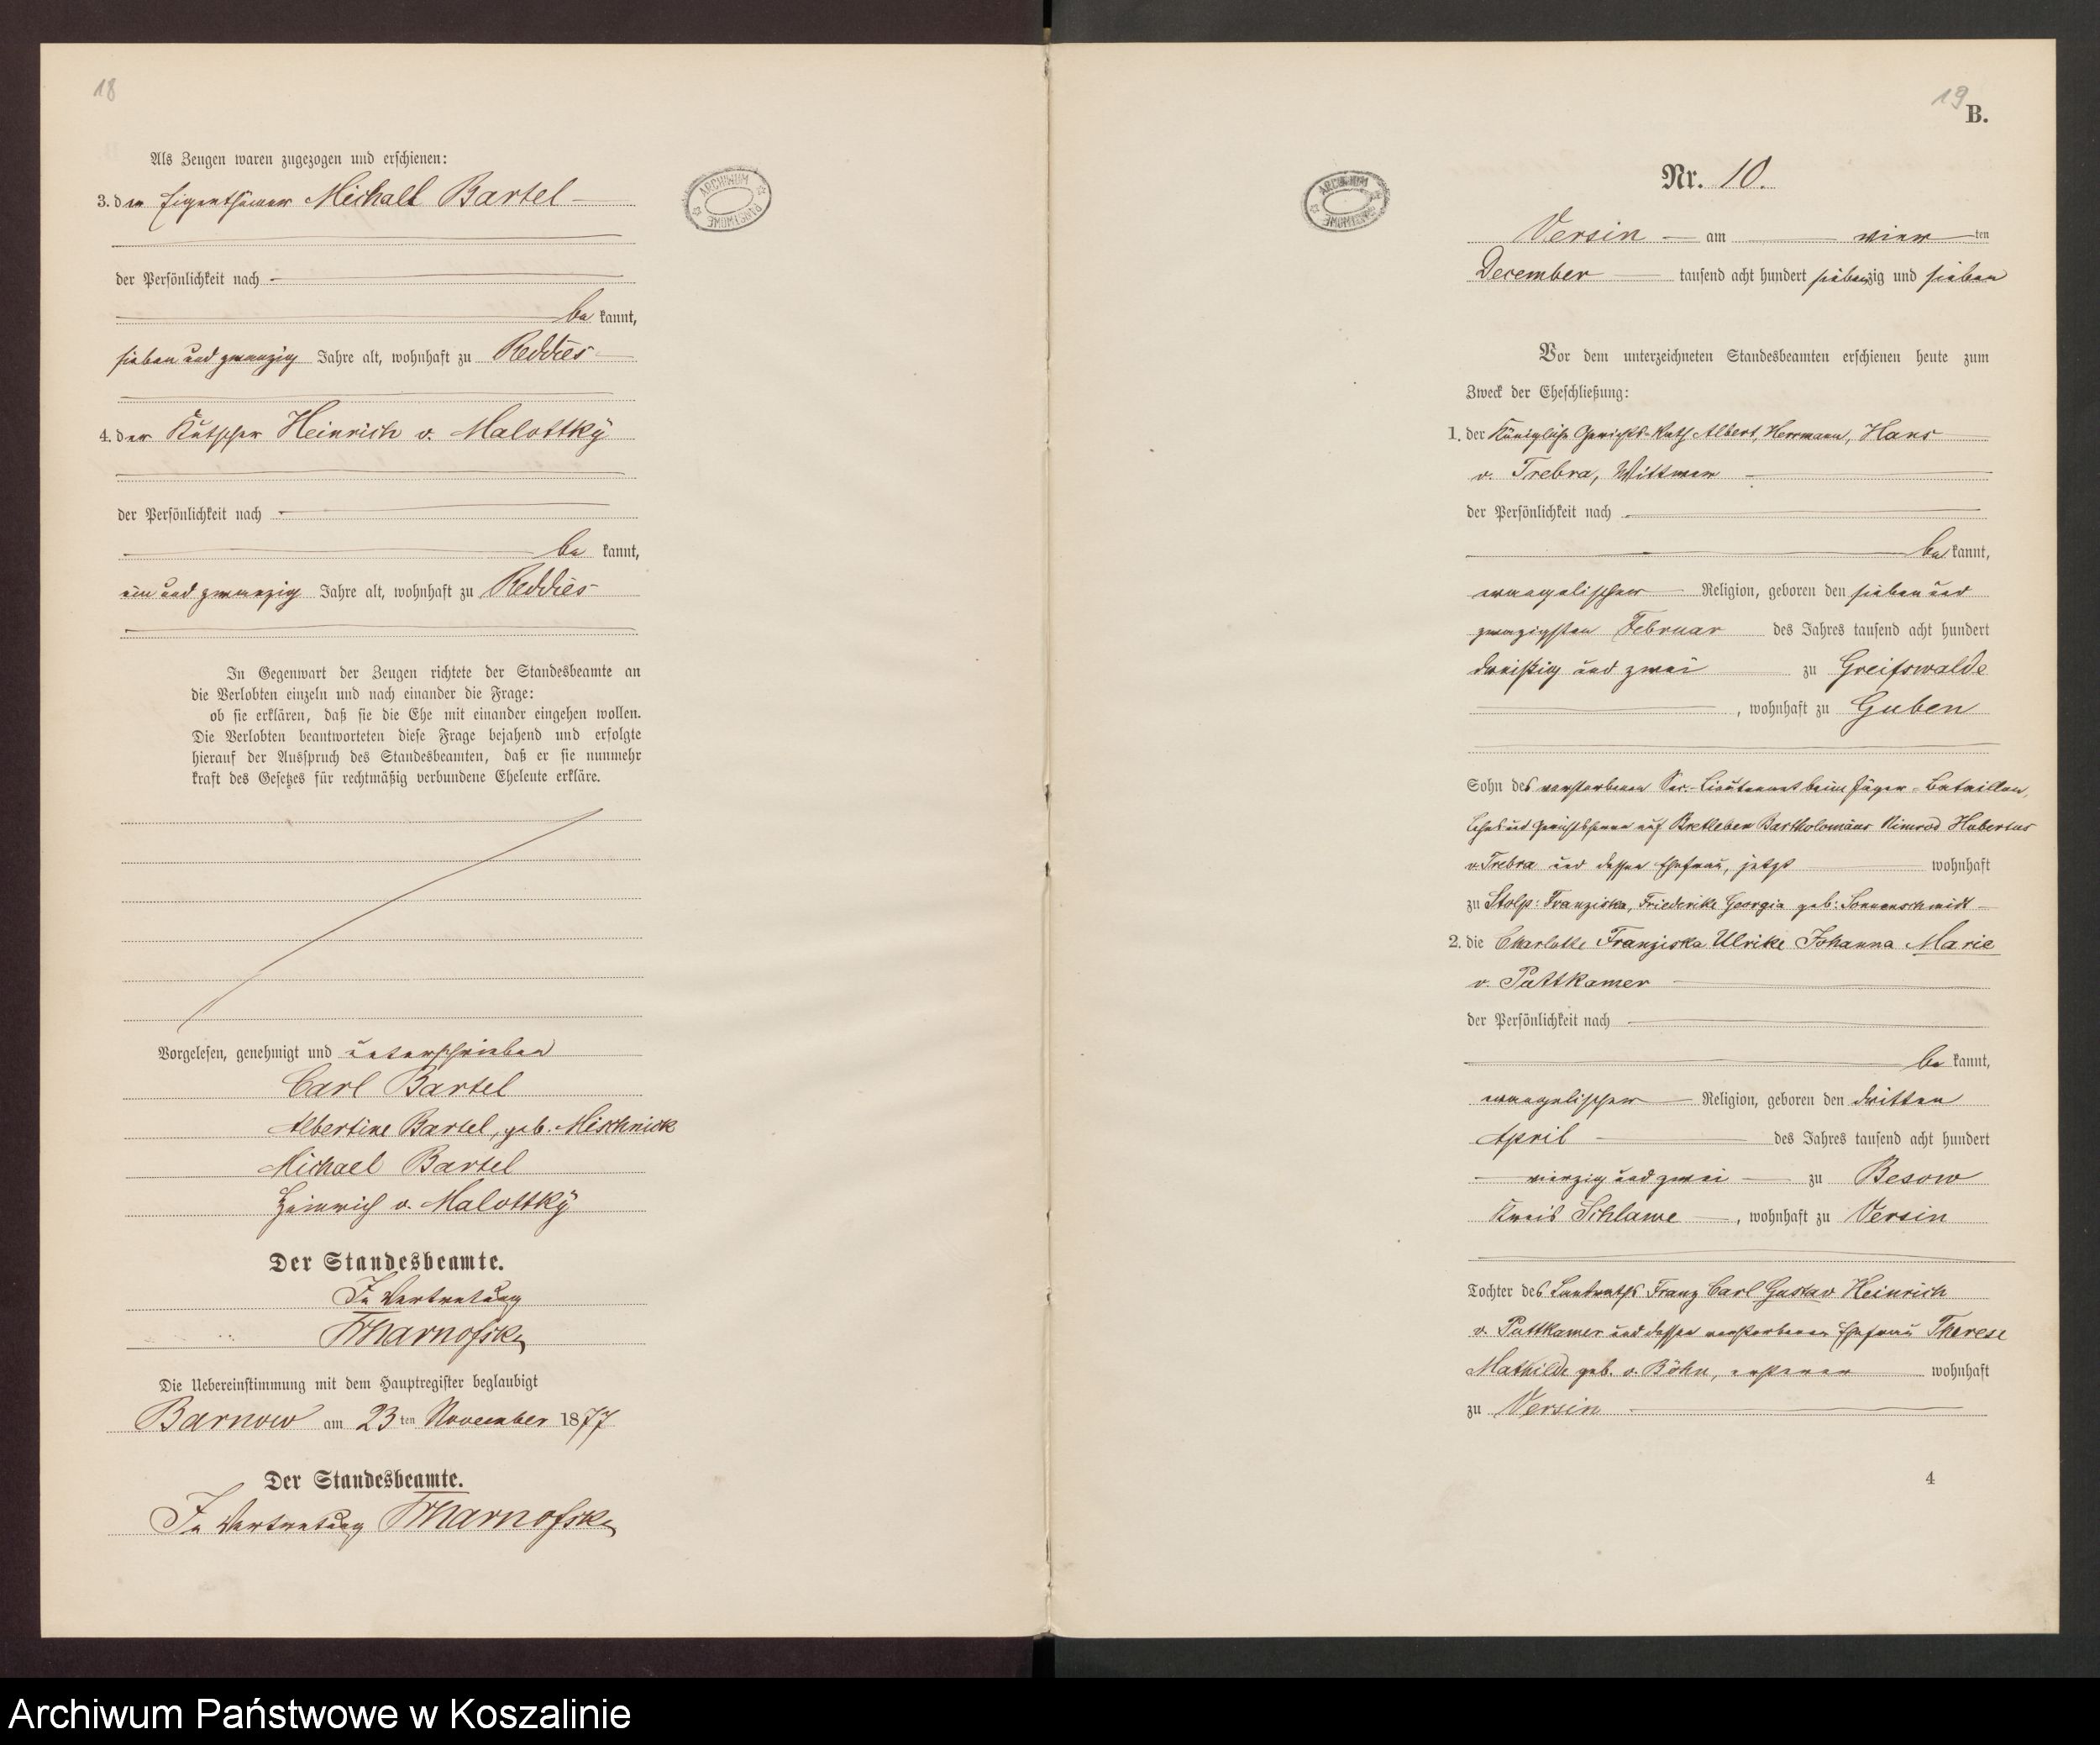 18
Als Zeugen waren zugezogen und erschienen:
3. den Eigenthümer Michael Bartel
der Persönlichkeit nach
be kannt,
sieben und zwanzig Jahre alt, wohnhaft zu Reddies
4. der Kutscher Heinrich v. Malottky
der Persönlichkeit nach
be kannt,
ein und zwanzig Jahre alt, wohnhaft zu Reddies
In Gegenwart der Zeugen richtete der Standesbeamte an
die Verlobten einzeln und nach einander die Frage:
ob sie erklären, daß sie die Ehe mit einander eingehen wollen.
Die Verlobten beantworteten diese Frage bejahend und erfolgte
hierauf der Ausspruch des Standesbeamten, daß er sie nunmehr
kraft des Gesetzes für rechtmäßig verbundene Eheleute erkläre.
Vorgelesen, genehmigt und unterschrieben
Carl Bartel
Albertine Bartel, geb. Mischnick
Michael Bartel
Heinrich v. Malottky
Der Standesbeamte.
In Vertretung
Die Uebereinstimmung mit dem Hauptregister beglaubigt
Barnow am 23 ten November 1877
Der Standesbeamte.
In Vertretung
ARCHIWUM PAŃSTWOWE
19
B.
Nr. 10.
Versin am vier ten
December tausend acht hundert siebenzig und sieben
Vor dem unterzeichneten Standesbeamten erschienen heute zum
Zweck der Eheschließung:
1. der Königliche Gerichts-Rath Albert, Herrmann, Hans
v. Trebra, Wittwer
der Persönlichkeit nach
be kannt,
evangelischer Religion, geboren den sieben und
zwanzigsten Februar des Jahres tausend acht hundert
dreißig und zwei zu Greifswalde
, wohnhaft zu Guben
Sohn des verstorbenen Sec.-Lieutenant beim Jäger-Bataillon,
Lehns und Gerichtsherrn auf Bretleben Bartholomäus Nimrod Hubertus
v. Trebra und dessen Ehefrau, jetzt wohnhaft
zu Stolp: Franziska, Friederike Georgia geb: Sonnenschmidt
2. die Charlotte Franziska Ulrike Johanna Marie
v. Puttkamer
der Persönlichkeit nach
be kannt,
evangelischer Religion, geboren den dritten
April des Jahres tausend acht hundert
vierzig und zwei zu Besow
Kreis Schlawe , wohnhaft zu Versin
Tochter des Landraths Franz Carl Gustav Heinrich
v. Puttkamer und dessen verstorbenen Ehefrau Therese
Mathilde geb. v. Böhn, ersterer wohnhaft
zu Versin
4
ARCHIWUM PAŃSTWOWE
Archiwum Państwowe w Koszalinie